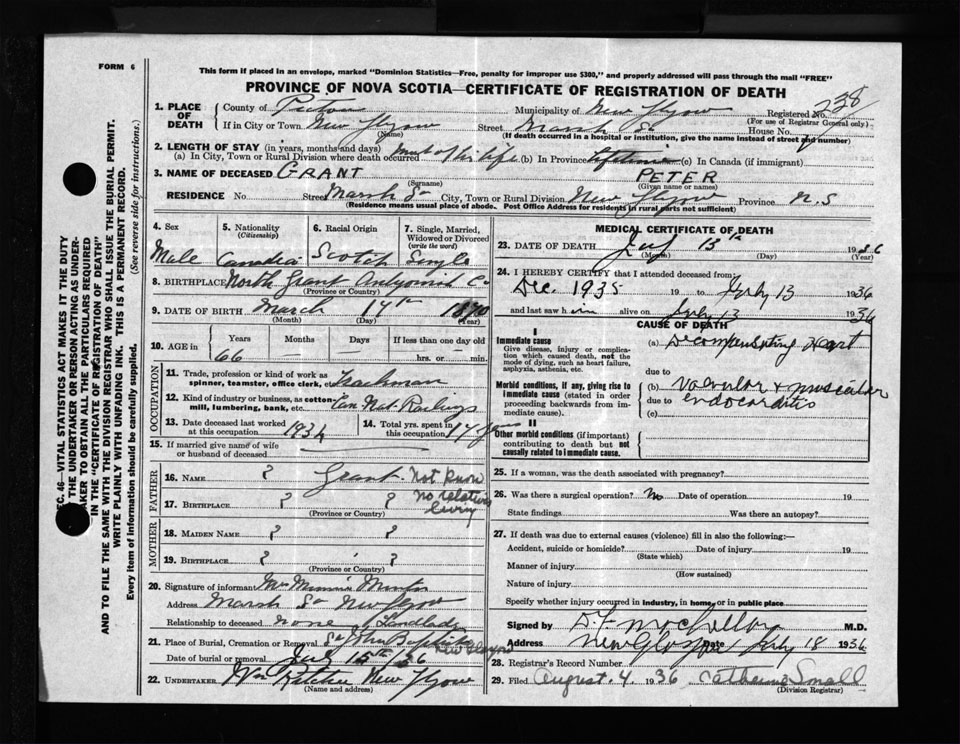 FORM 6
This form if placed in an envelope, marked "Dominion Statistics—Free, penalty for improper use $300," and properly addressed will pass through the mail "FREE"
PROVINCE OF NOVA SCOTIA—CERTIFICATE OF REGISTRATION OF DEATH
1. PLACE OF DEATH
County of Pictou Municipality of New Glgow Registered No. 238
(For use of Registrar General only)
If in City or Town New Glgow Street Marsh St House No.
(Name) (If death occurred in a hospital or institution, give the name instead of street and number)
2. LENGTH OF STAY (in years, months and days)
(a) In City, Town or Rural Division where death occurred most of his life (b) In Province lifetime (c) In Canada (if immigrant)
3. NAME OF DECEASED GRANT PETER
(Surname) (Given name or names)
RESIDENCE No. Street Marsh St City, Town or Rural Division New Glgow Province N.S
(Residence means usual place of abode. Post Office Address for residents in rural parts not sufficient)
4. Sex Male
5. Nationality (Citizenship) Canadian
6. Racial Origin Scotch
7. Single, Married, Widowed or Divorced (write the word) Single
8. BIRTHPLACE North Grant Antigonish Co
(Province or Country)
9. DATE OF BIRTH March 17th 1870
(Month) (Day) (Year)
10. AGE in Years Months Days If less than one day old
66 — — hrs. or min.
OCCUPATION
11. Trade, profession or kind of work as spinner, teamster, office clerk, etc. Trackman
12. Kind of industry or business, as cotton-mill, lumbering, bank, etc. Can Nat. Railways
13. Date deceased last worked at this occupation 1934
14. Total yrs. spent in this occupation 14 years
15. If married give name of wife or husband of deceased
FATHER
16. NAME ? Grant Not Know
17. BIRTHPLACE ? ? no relatives living
(Province or Country)
MOTHER
18. MAIDEN NAME ? ?
19. BIRTHPLACE ? ?
(Province or Country)
20. Signature of informant Mrs Minnie
Address Marsh St New Glgow
Relationship to deceased none Landlady
21. Place of Burial, Cremation or Removal St John Baptist New Glasgow
Date of burial or removal July 15th/36
22. UNDERTAKER Wm Ritchie New Glgow
(Name and address)
MEDICAL CERTIFICATE OF DEATH
23. DATE OF DEATH July 13th 1936
(Month) (Day) (Year)
24. I HEREBY CERTIFY that I attended deceased from
Dec. 1935 19 to July 13 1936
and last saw him alive on July 13 1936
CAUSE OF DEATH
I
Immediate cause
Give disease, injury or complication which caused death, not the mode of dying, such as heart failure, asphyxia, asthenia, etc.
(a) Decompensating Heart
due to
Morbid conditions, if any, giving rise to immediate cause (stated in order proceeding backwards from immediate cause).
(b) Valvular & muscular
due to endocarditis
(c)
II
Other morbid conditions (if important) contributing to death but not causally related to immediate cause.
25. If a woman, was the death associated with pregnancy?
26. Was there a surgical operation? No Date of operation 19
State findings Was there an autopsy?
27. If death was due to external causes (violence) fill in also the following:—
Accident, suicide or homicide? Date of injury 19
(State which)
Manner of injury
(How sustained)
Nature of injury
Specify whether injury occurred in industry, in home, or in public place
Signed by M.D.
Address New Glasgow Date July 18 1936
28. Registrar's Record Number
29. Filed August. 4. 1936 Catherine Small
(Division Registrar)
SEC. 46—VITAL STATISTICS ACT MAKES IT THE DUTY
OF THE UNDERTAKER OR PERSON ACTING AS UNDERTAKER TO OBTAIN ALL THE PARTICULARS REQUIRED
IN THE "CERTIFICATE OF REGISTRATION OF DEATH"
AND TO FILE THE SAME WITH THE DIVISION REGISTRAR WHO SHALL ISSUE THE BURIAL PERMIT.
WRITE PLAINLY WITH UNFADING INK. THIS IS A PERMANENT RECORD.
Every item of information should be carefully supplied. (See reverse side for instructions.)